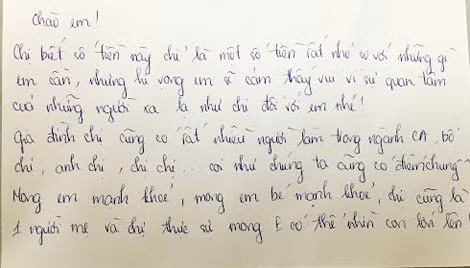 Chào em!
Chị biết số tiền này chỉ là một số tiền rất nhỏ so với những gì
em cần, nhưng hi vọng em sẽ cảm thấy vui vì sự quan tâm
của những người xa lạ như chị đối với em nhé!
Gia đình chị cũng có rất nhiều người làm trong ngành CA, bố
chị, anh chị, chị chị... coi như chúng ta cũng có điểm chung
Mong em mạnh khoẻ, mong em bé mạnh khoẻ, chị cũng là
1 người mẹ và chị thực sự mong E có thể nhìn con lớn lên!